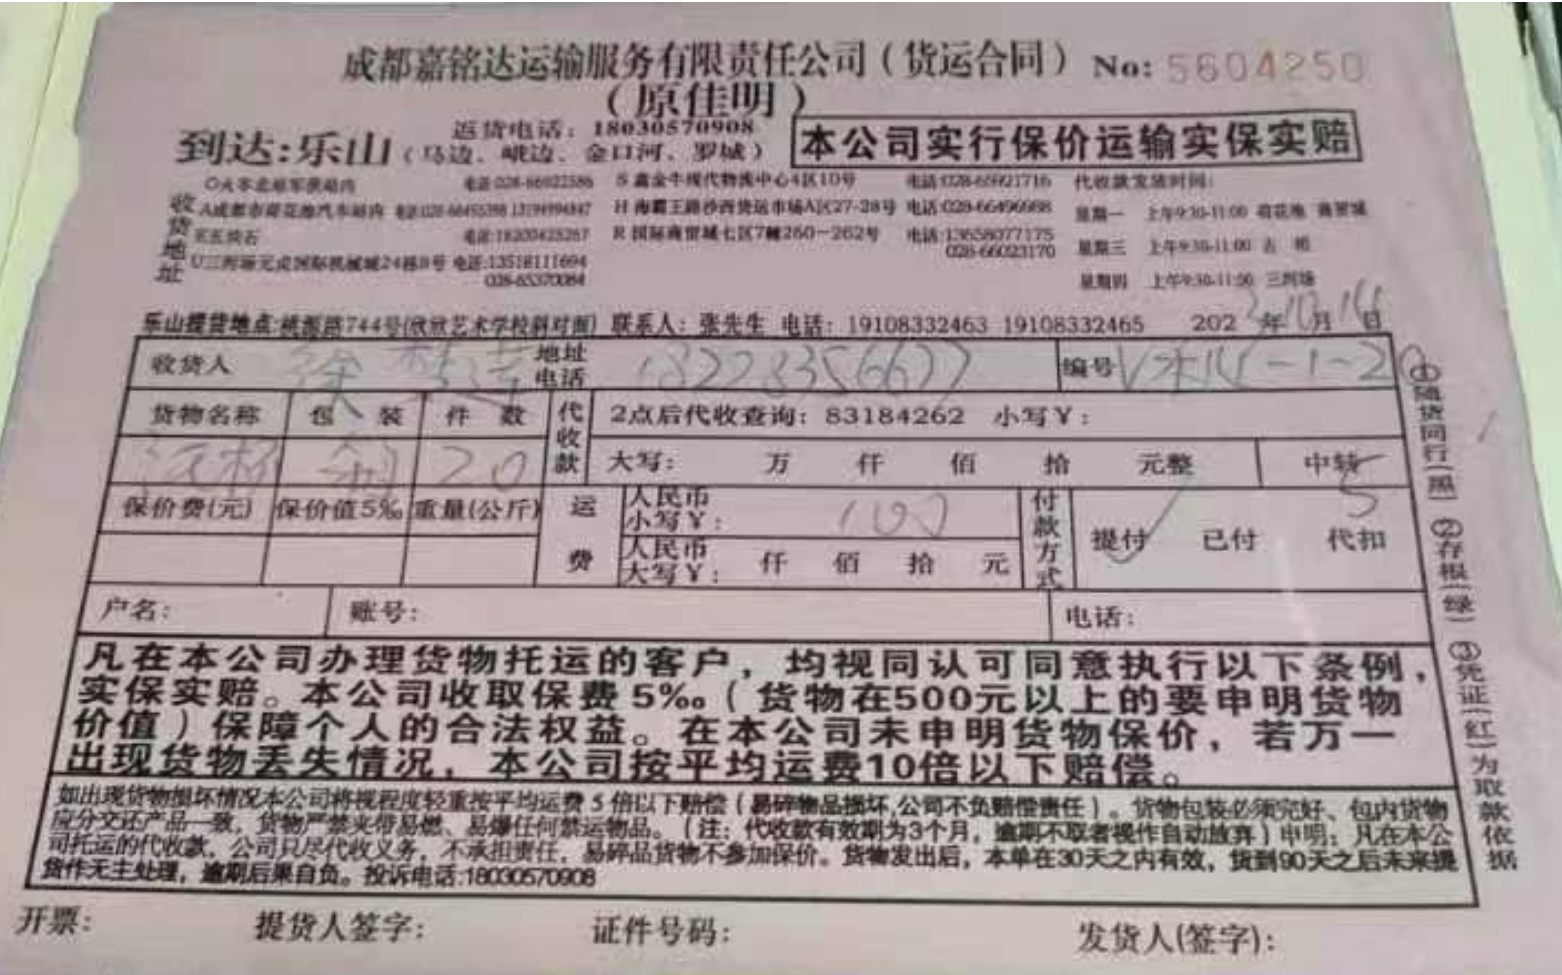 成都嘉铭达运输服务有限责任公司（货运合同） No: 5604250
（原佳明）
返货电话：18030570908
到达:乐山（马边、峨边、金口河、罗城） 本公司实行保价运输实保实赔
收货地址
O火车北站军供站内 电话:028-66922586 S 鑫金牛现代物流中心4区10号 电话:028-65921716 代收款发放时间:
A成都市荷花池汽车站内 H 海霸王路沙西货运市场A区27-28号 电话:028-66496988 星期一 上午9:30-11:00 荷花池 商贸城
E五块石 电话:18200425267 R 国际商贸城七区7幢260-262号 电话:13658077175 星期三 上午9:30-11:00
028-66023170
U三河场元贞国际机械城24栋8号 电话:13518111694 星期四 上午9:30-11:00 三河场
028-65370084
乐山提货地点:桃源路744号(欣欣艺术学校斜对面) 联系人: 张先生 电话: 19108332463 19108332465 202 年 月 日
收货人 地址电话 18228356677 编号
货物名称 包 装 件 数 代收款 2点后代收查询: 83184262 小写¥:
20 大写: 万 仟 佰 拾 元整 中转
保价费(元) 保价值5‰ 重量(公斤) 运费 人民币小写¥: 100 付款方式 提付 已付 代扣 5
人民币大写¥: 仟 佰 拾 元
户名: 账号: 电话:
凡在本公司办理货物托运的客户，均视同认可同意执行以下条例，
实保实赔。本公司收取保费5‰（货物在500元以上的要申明货物
价值）保障个人的合法权益。在本公司未申明货物保价，若万一
出现货物丢失情况，本公司按平均运费10倍以下赔偿。
如出现货物损坏情况本公司将视程度轻重按平均运费5倍以下赔偿（易碎物品损坏,公司不负赔偿责任）。货物包装必须完好、包内货物
应分文还产品一致，货物严禁夹带易燃、易爆任何禁运物品。（注：代收款有效期为3个月，逾期不取者视作自动放弃）申明：凡在本公
司托运的代收款，公司只尽代收义务，不承担责任，易碎品货物不参加保价。货物发出后，本单在30天之内有效，货到90天之后未来提
货作无主处理，逾期后果自负。投诉电话:18030570908
开票: 提货人签字: 证件号码: 发货人(签字):
①随货同行(黑) ②存根(绿) ③凭证(红)为取款依据